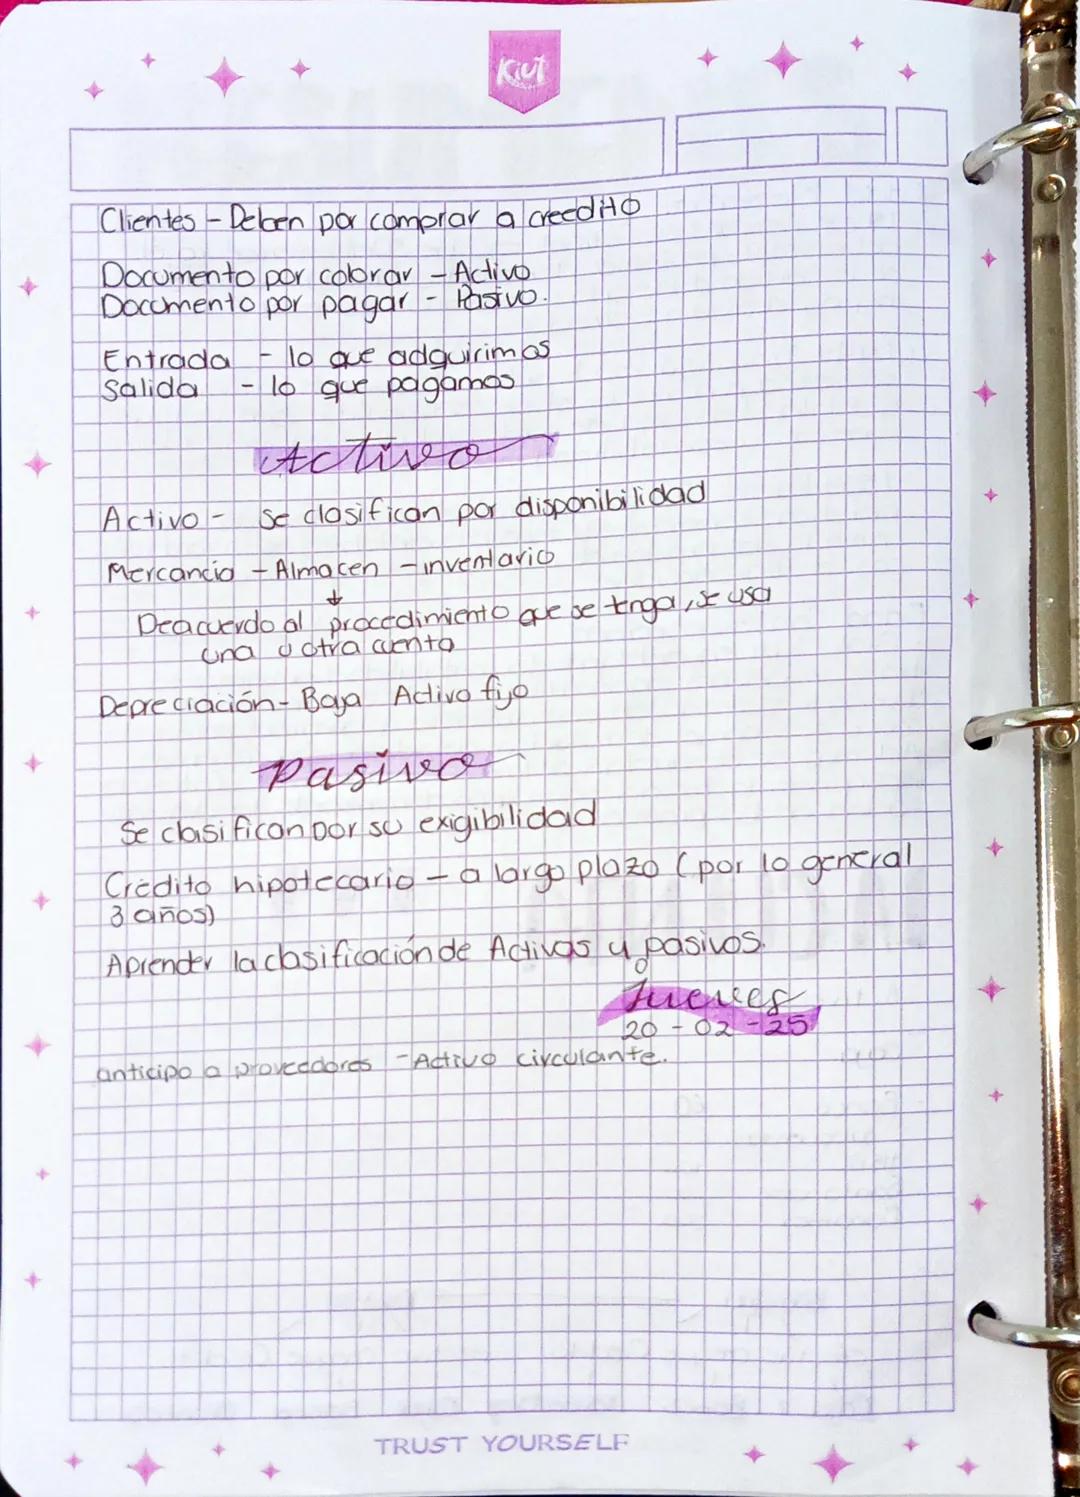 Kiut
Clientes - Deben por comprar a creedito
Documento por cobrar - Activo
Documento por pagar - Pasivo.
Entrada - lo que adquirimos
Salida - lo que pagamos
Activo
Activo - se clasifican por disponibilidad
Mercancia - Almacen - inventario
Deacuerdo al procedimiento que se tenga, se usa
una u otra cuenta
Depreciación - Baja Activo fijo
Pasivo
Se clasifican por su exigibilidad
Crédito hipotecario - a largo plazo (por lo general
3 años)
Aprender la clasificación de Activos y pasivos.
Jueves
20 - 02 - 25
anticipo a proveedores - Activo circulante.
TRUST YOURSELF